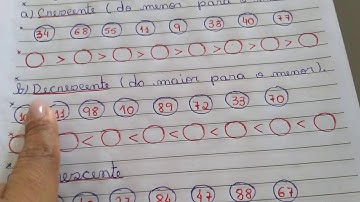 a) Crescente (do menor para o
34 68 55 11 9 38 40 77
> > > > > > >
b) Decrescente (do maior para o menor).
11 98 10 89 72 33 70
< < < < < <
crescente
84 47 88 67